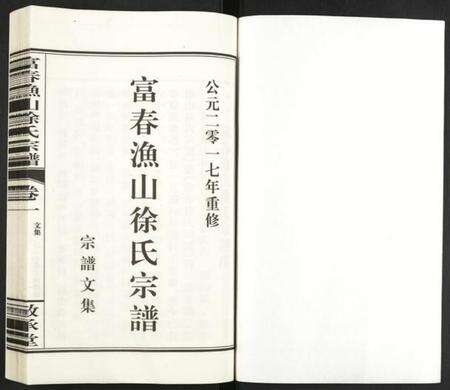 公元二零一七年重修
富春渔山徐氏宗譜
宗譜文集
富春渔山徐氏宗譜
卷一
文集